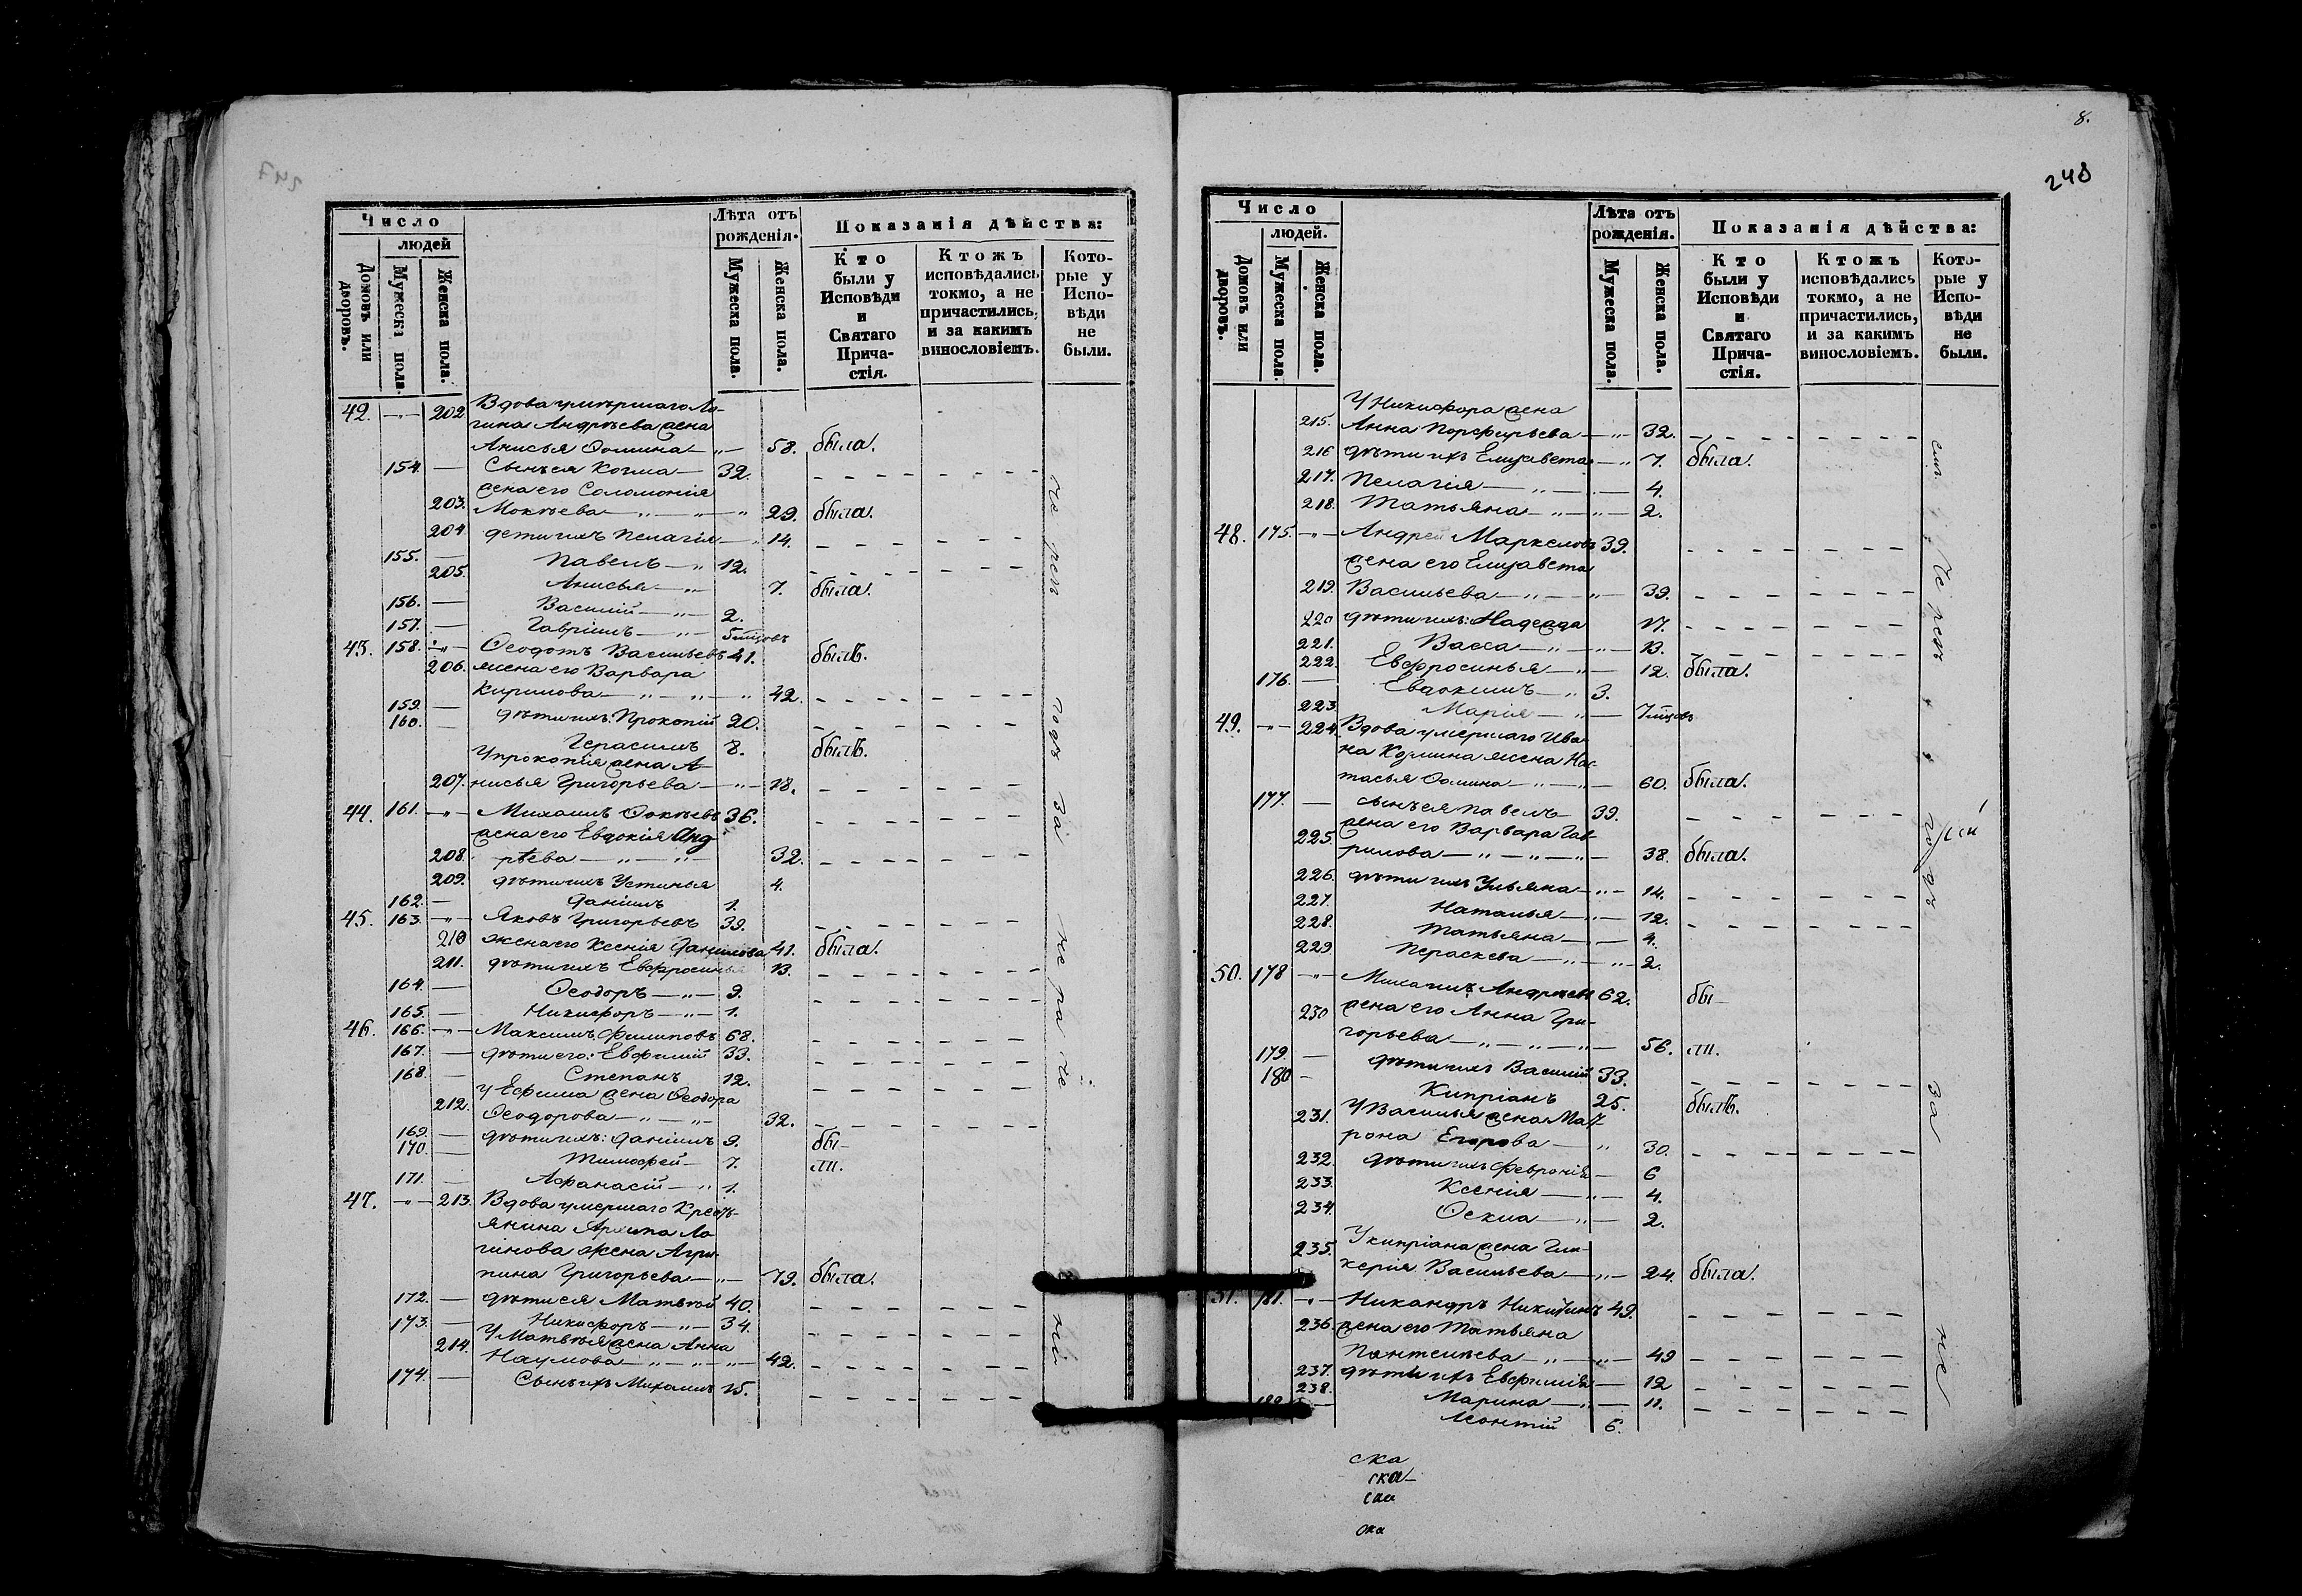 8.
248
Число
людей
Домовъ или дворовъ.
Мужеска пола.
Женска пола.
Лѣта отъ рожденія.
Мужеска пола.
Женска пола.
Показанія дѣйства:
Кто были у Исповѣди и Святаго Причастія.
Ктожъ исповѣдались токмо, а не причастились, и за какимъ винословіемъ.
Которые у Исповѣди не были.
42. —„— 202. Вдова умершаго Ло-
гина Андрѣева жена
Анисья Ѳомина —„— 58. была.
154. — Сынъ ея Козма — 32.
жена его Соломонія
203. Мокѣева —„—„—„ 29. была.
204 дети ихъ Пелагія —„ 14.
155. — Павелъ —„ 12.
205. Анисья —„— 7. была.
156. — Василій —„— 2.
157. — Гавріилъ —„— 5 мѣцовъ
43. 158. —„— Ѳеодотъ Васильевъ 41. былъ.
206. жена его Варвара
Кирилова —„—„—„ 42.
159. — дѣти ихъ: Прокопій 20.
160. — Герасимъ 8. былъ.
У Прокопія жена А-
207. нисья Григорьева —„— 18.
44. 161. —„— Михаилъ Ѳокѣевъ 36.
жена его Евдокія Анд
208. рѣева —„—„— 32.
209. дѣти ихъ Устинья 4.
162. — Даніилъ 1.
45. 163. —„— Яковъ Григорьевъ 39.
210 жена его Ксенія Данилова 41. была.
211. дѣти ихъ Евфросинья 13.
164. — Ѳеодоръ —„— 9.
165. — Никифоръ —„— 1.
46. 166. —„— Максимъ Филиповъ 68.
167. — дѣти его: Евфимій 33.
168. — Степанъ 12.
у Ефима жена Ѳеодора
212. Ѳеодорова —„—„— 32.
169. — дѣти ихъ: Даніилъ 9. бы-
170. — Тимофей — 7. ли.
171. — Афанасій —„ 1.
47. —„— 213. Вдова умершаго Кресть-
янина Архипа Ло-
гинова жена Агри-
пина Григорьева —„— 79. была.
172. — дѣти ея Матвѣй 40.
173. — Никифоръ —„— 34.
У Матвѣя жена Анна
214. Наумова —„—„—„— 42.
174. — Сынъ ихъ Михаилъ 15.
не рен
годъ
за
не ра
че
ни
Число
людей.
Домовъ или дворовъ.
Мужеска пола.
Женска пола.
Лѣта отъ рожденія.
Мужеска пола.
Женска пола.
Показанія дѣйства:
Кто были у Исповѣди и Святаго Причастія.
Ктожъ исповѣдались токмо, а не причастились, и за какимъ винословіемъ.
Которые у Исповѣди не были.
У Никифора жена
215. Анна Порфирьева —„— 32.
216 дѣти ихъ Елизавета —„ 7. была.
217. Пелагія —„— 4.
218. Татьяна —„—„— 2.
48. 175. —„— Андрей Маркеловъ 39.
жена его Елизавета
219. Васильева —„—„— 39.
220 дѣти ихъ: Надежда 17.
221. Васса —„—„— 13.
222. Евфросинья —„— 12. была.
176. — Евдокимъ —„ 3.
223. Марія —„— 7 мѣцовъ
49. —„— 224. Вдова умершаго Ива-
на Козмина жена Нас-
тасья Ѳомина —„—„— 60. была.
177. — сынъ ея Павелъ 39.
жена его Варвара Гав-
225. рилова —„—„—„— 38. была.
226. дѣти ихъ Ульяна —„— 14.
227. Наталья —„— 12.
228. Татьяна —„— 4.
229. Пераскева —„—„— 2.
50. 178 —„— Михаилъ Андреевъ 62. бы-
230 жена его Анна Гри-
горьева —„—„—„— 56. ли.
179. — дѣти ихъ Василій 33.
180 — Кипріанъ 25. былъ.
231. У Василья жена Мат-
рона Егорова —„ 30.
232. дѣти ихъ Февронія — 6
233. Ксенія —„— 4.
234. Ѳекла —„— 2.
У Кипріана жена Гли-
235. керія Васильева —„— 24. была.
51. 181. —„— Никандръ Никитинъ 49.
236. жена его Татьяна
Пантелѣева —„—„— 49
237. дѣти ихъ Евфимія — 12
238. Марина —„— 11.
182 — Леонтій 6.
не рен
годъ
за
не
ска
ска-
ска